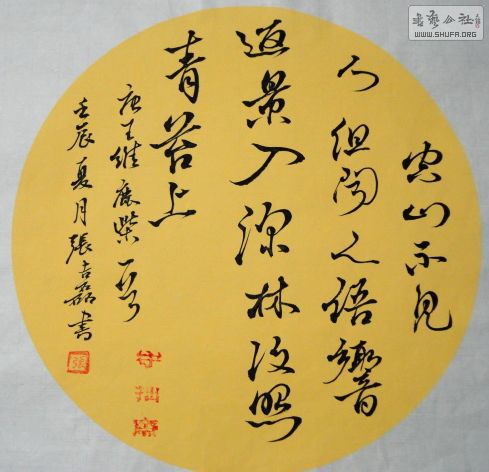 空山不見
人但闻人語響
返景入深林復照
青苔上
唐王維鹿柴一首
壬辰夏月張吉磊書
張
守拙齋
書藝公社
WWW.SHUFA.ORG